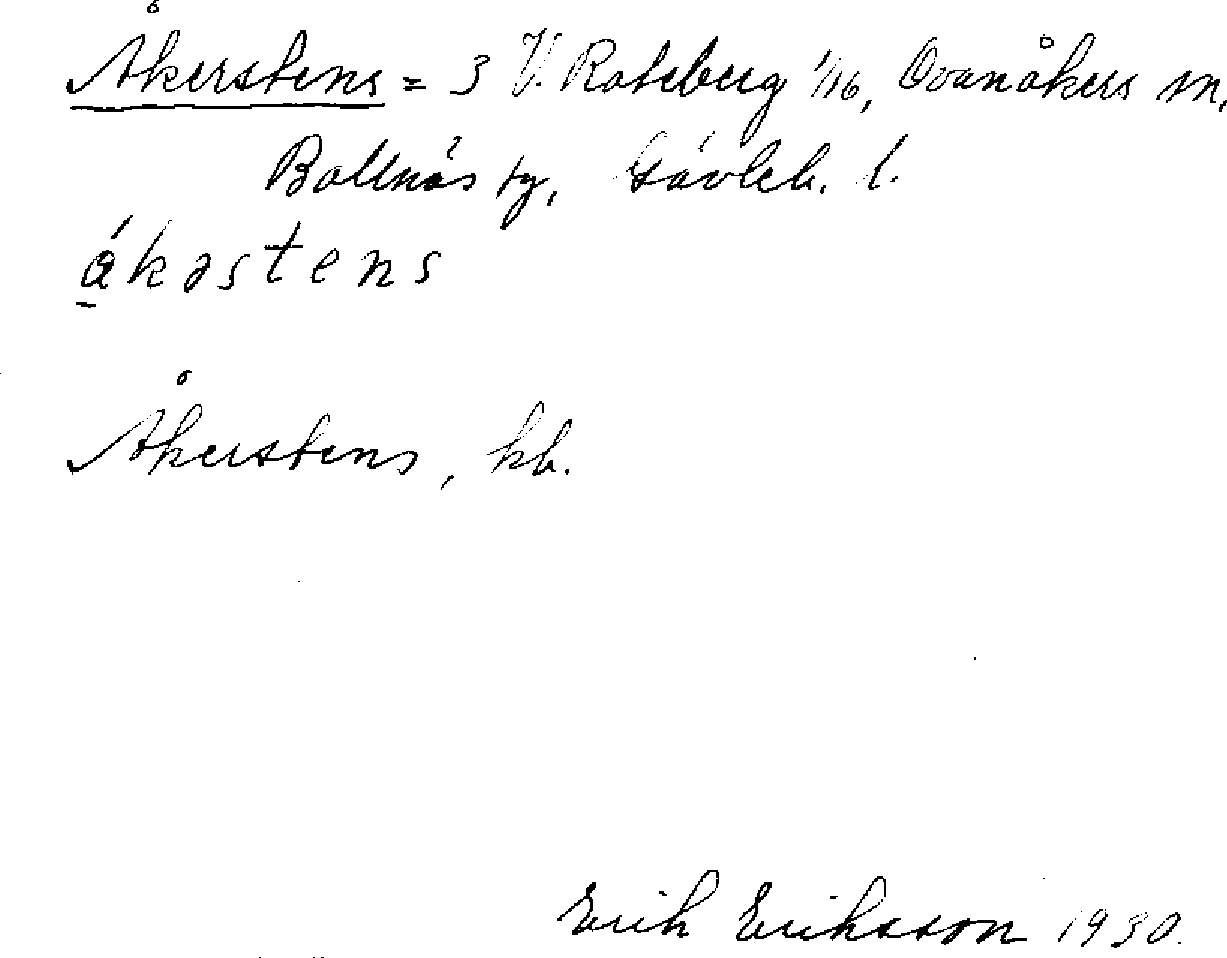 Åkerstens = 3 V. Roteberg 1/16, Ovanåkers sn,
Bollnäs fg, Gävleb. l.
ákəstens
Åkerstens, kb.
Erik Eriksson 1930.